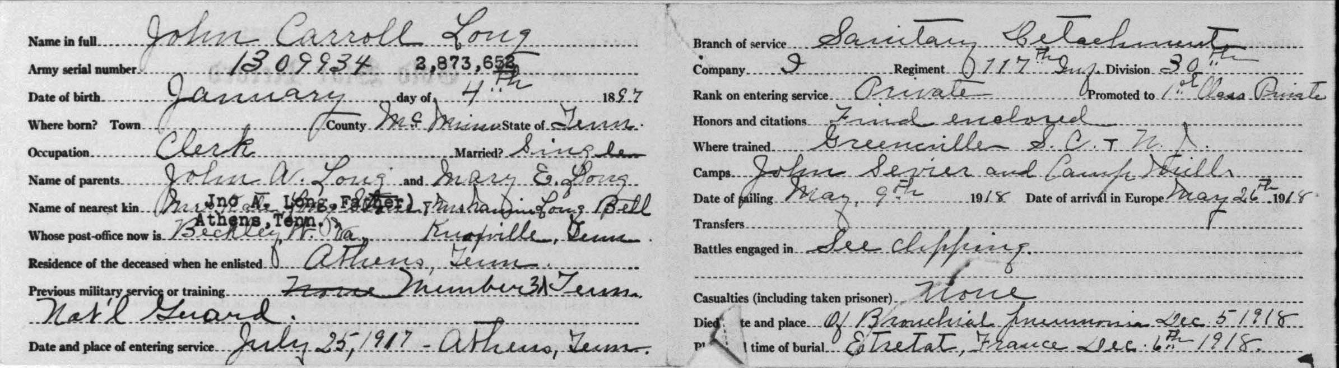 Name in full John Carroll Long
Army serial number 1309934 2,873,652
Date of birth January day of 4th 1897
Where born? Town County McMinn State of Tenn.
Occupation Clerk Married? Single
Name of parents John A. Long and Mary E. Long
Jno A. Long, Father)
Name of nearest kin Long Bell
Athens, Tenn.
Whose post-office now is Beckley W. Va. Knoxville, Tenn.
Residence of the deceased when he enlisted Athens, Tenn.
Previous military service or training None Member 3d Tenn.
Nat'l Guard.
Date and place of entering service July 25, 1917 - Athens, Tenn.
Branch of service Sanitary Detachment
Company Regiment 117th Inf. Division 30th
Rank on entering service Private Promoted to 1st Class Private
Honors and citations Find enclosed
Where trained Greenville S. C. + N. J.
Camps John Sevier and Camp Mills
Date of sailing May, 9th 1918 Date of arrival in Europe May 26th 1918
Transfers
Battles engaged in See clipping.
Casualties (including taken prisoner) None
Died te and place Of Bronchial pneumonia Dec 5 1918
time of burial Etretat, France Dec. 6th 1918.